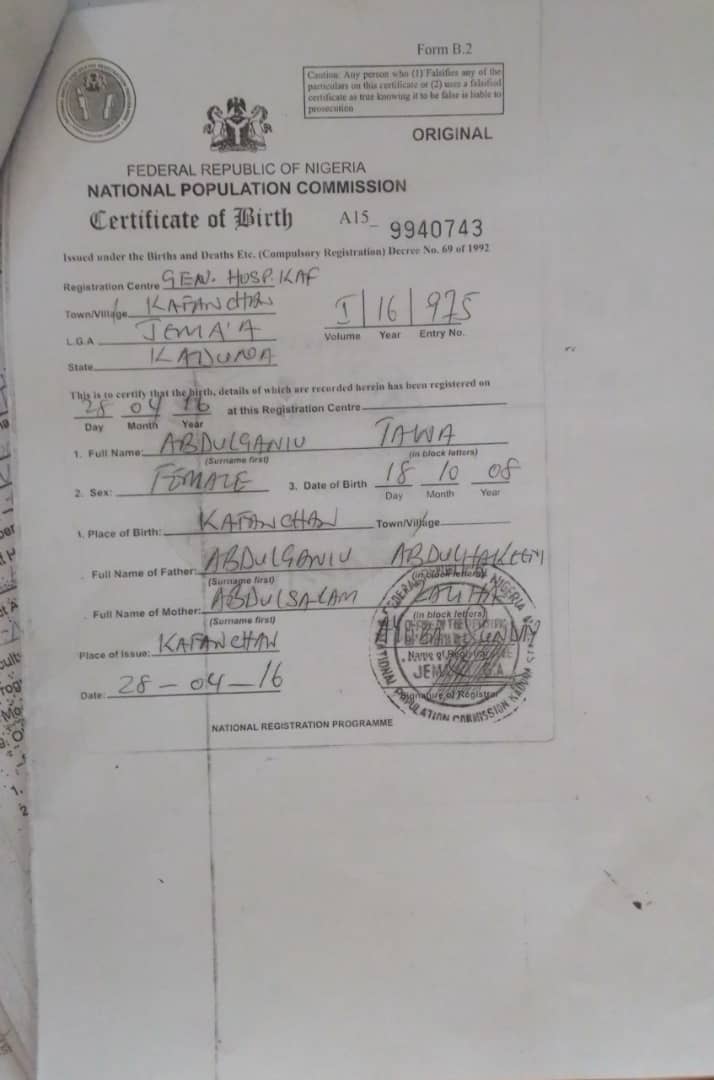 Form B.2
Caution: Any person who (1) Falsifies any of the
particulars on this certificate or (2) uses a falsified
certificate as true knowing it to be false is liable to
prosecution
ORIGINAL
FEDERAL REPUBLIC OF NIGERIA
NATIONAL POPULATION COMMISSION
Certificate of Birth A15_ 9940743
Issued under the Births and Deaths Etc. (Compulsory Registration) Decree No. 69 of 1992
Registration Centre GEN. HOSP. KAF
Town/Village KAFANCHAN
I 16 975
L.G.A JEMA'A
Volume Year Entry No.
State KADUNA
This is to certify that the birth, details of which are recorded herein has been registered on
28 04 16 at this Registration Centre
Day Month Year
1. Full Name: ABDULGANIU TAWA
(Surname first) (in block letters)
2. Sex: FEMALE 3. Date of Birth 18 10 08
Day Month Year
Place of Birth: KAFANCHAN Town/Village
Full Name of Father: ABDULGANIU ABDULHAKEEM
(Surname first) (in block letters)
Full Name of Mother: ABDULSALAM
(Surname first) (in block letters)
Place of Issue: KAFANCHAN
Name of Registrar
Date: 28-04-16
Signature of Registrar
NATIONAL REGISTRATION PROGRAMME
NATIONAL POPULATION COMMISSION